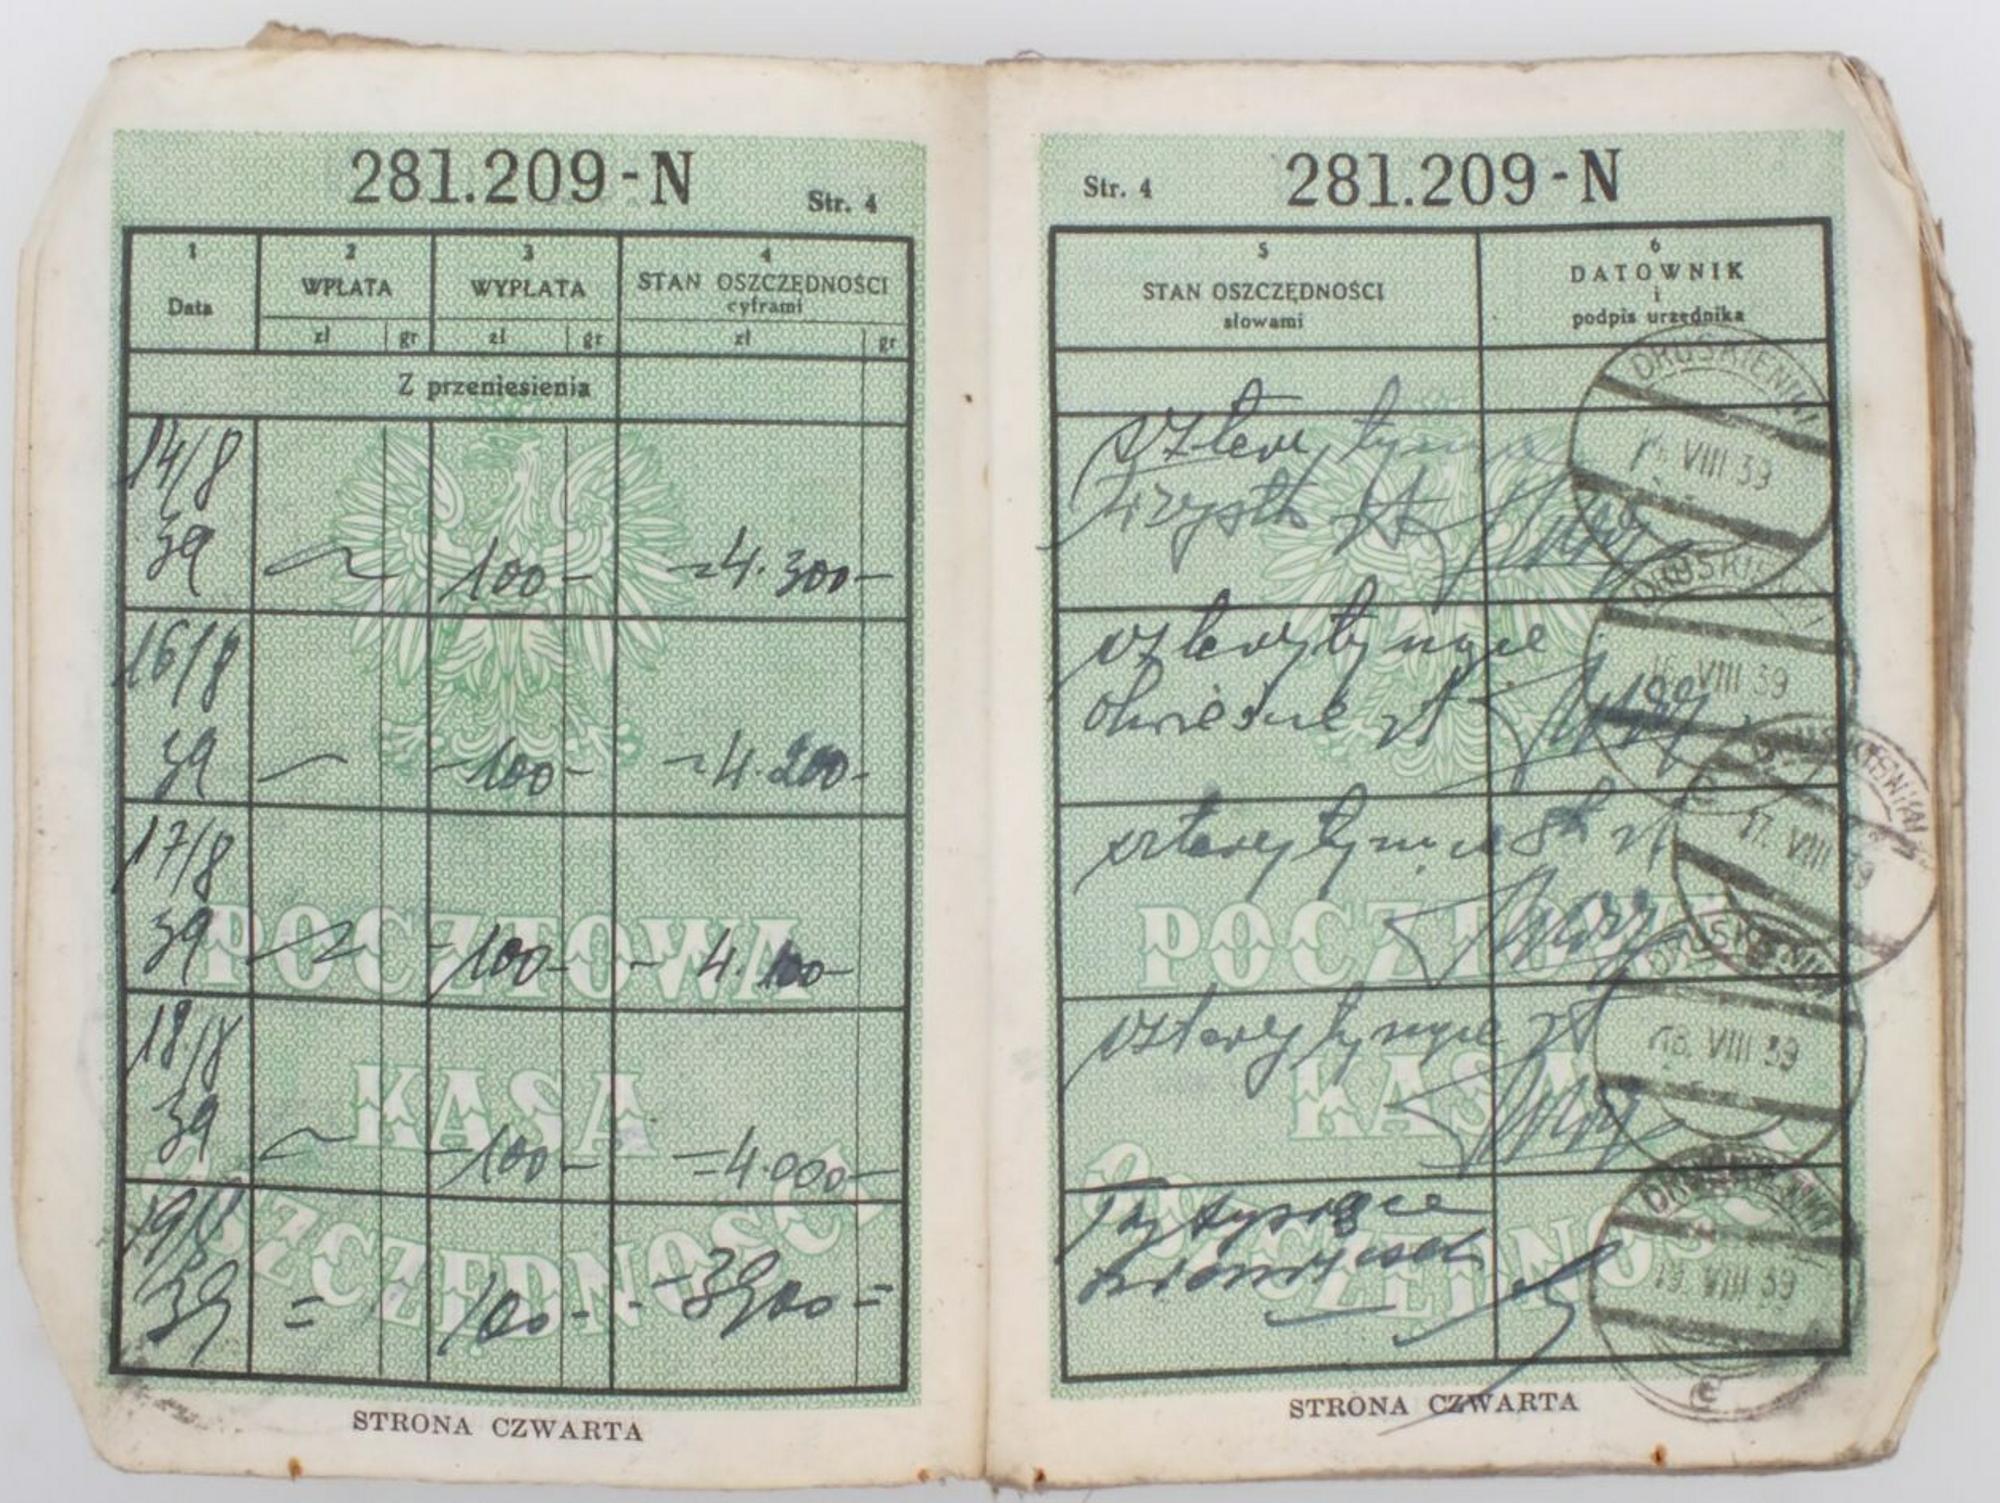 281.209-N
Str. 4
1 2 3 4
Data WPŁATA WYPŁATA STAN OSZCZĘDNOŚCI
cyframi
zł gr zł gr zł gr
Z przeniesienia
14/8
39 100- =4.300-
16/8
39 -100- =4.200-
17/8
39 -100- - 4.100-
18/8
39 -100- =4.000-
19/8
39 = 100- - 3900=
POCZTOWA
KASA
OSZCZĘDNOŚCI
STRONA CZWARTA
Str. 4
281.209-N
5 6
STAN OSZCZĘDNOŚCI
słowami
DATOWNIK
i
podpis urzędnika
cztery tysiące
trzysta zł
DRUSKIENIKI
VIII 39
cztery tysiące
dwieście zł
16. VIII 39
cztery tysiące sto zł
DRUSKIENIKI
17. VIII 39
cztery tysiące zł
DRUSKIENIKI
18. VIII 39
Trzy tysiące
dziewięćset
DRUSKIENIKI
19. VIII 39
POCZTOWA
KASA
OSZCZĘDNOŚCI
STRONA CZWARTA